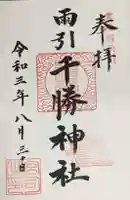 奉拝
雨引千勝神社
令和三年八月三十日